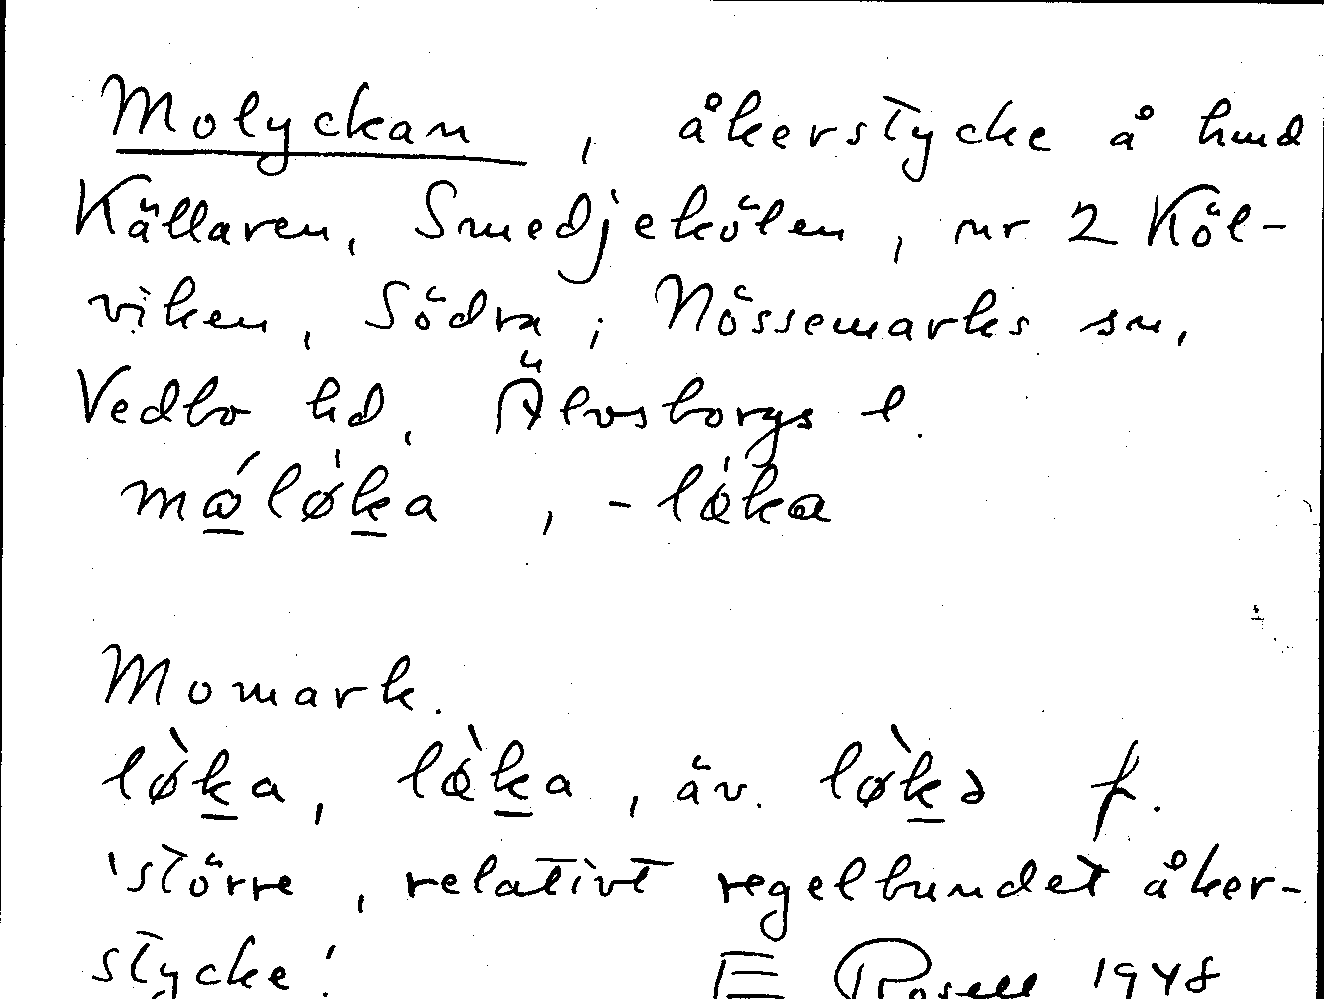 Molyckan, åkerstycke å hmd
Källaren, Smedjekölen, nr 2 Köl-
viken, Södra; Nössemarks sn,
Vedbo hd, Älvsborgs l.
Momark.
äv. f.
'större, relativt regelbundet åker-
stycke'. E Rosell 1948